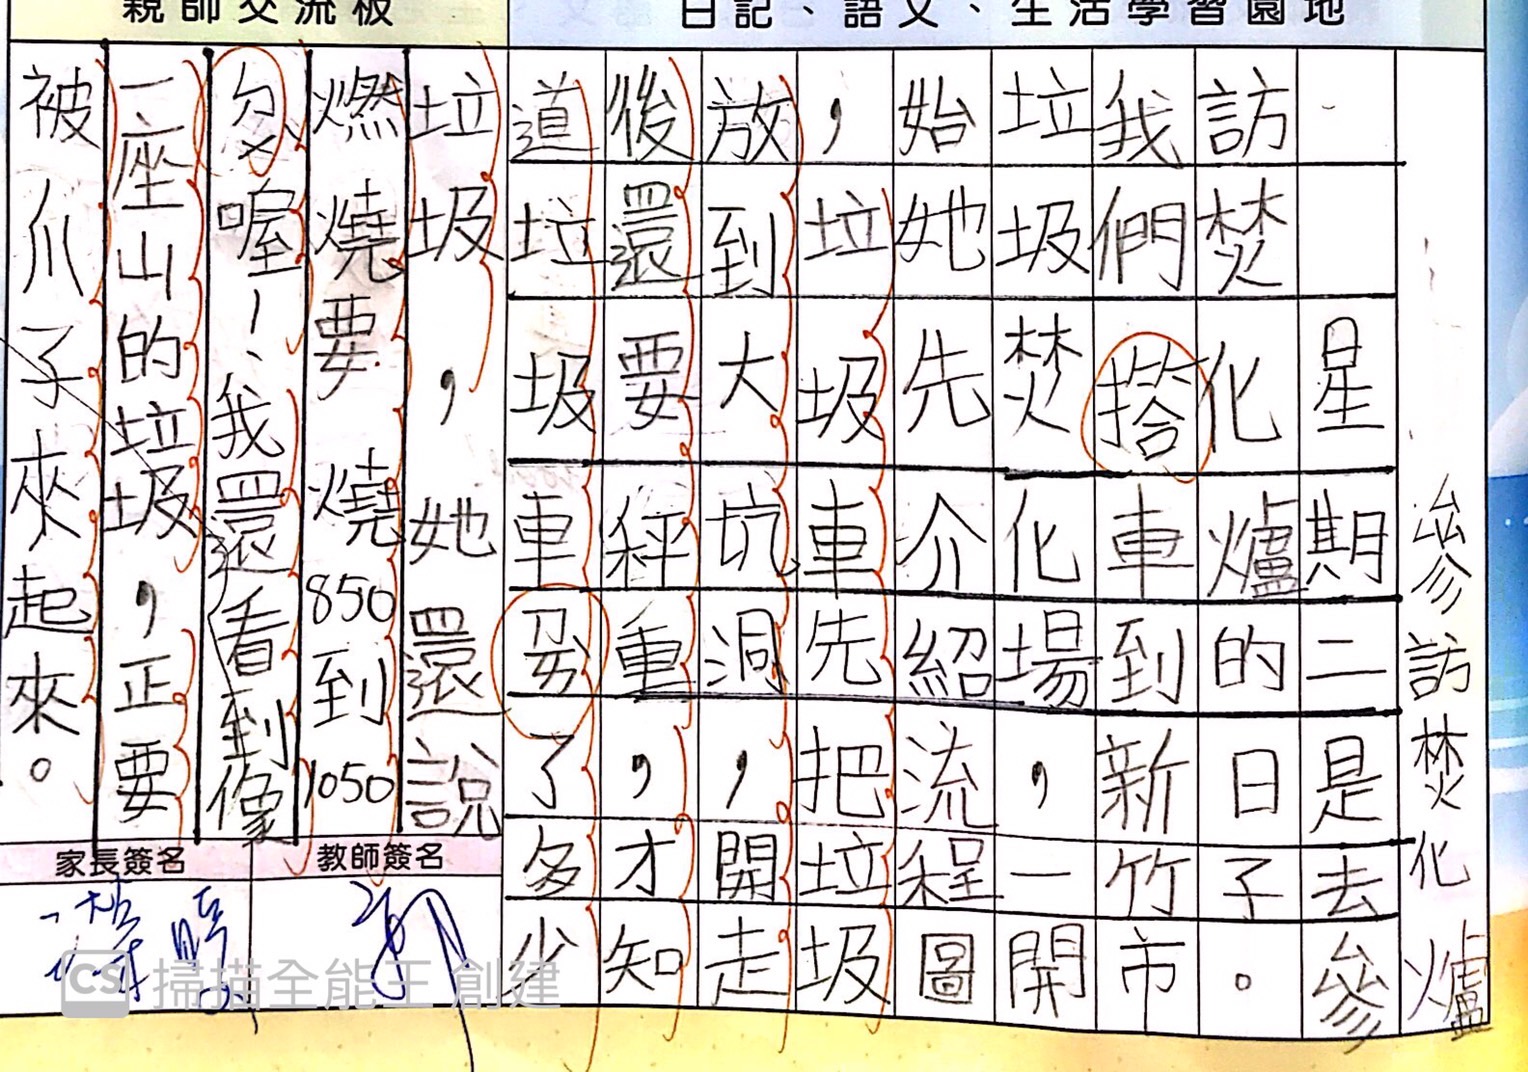 親師交流板
日記、語文、生活學習園地
參訪焚化爐
星期二是去參
訪焚化爐的日子。
我們搭車到新竹市
垃圾焚化場，一開
始她先介紹流程圖
，垃圾車先把垃圾
放到大坑洞，開走
後還要秤重，才知
道垃圾車丟了多少
垃圾，她還說
燃燒要燒850到1050
度喔！我還看到像
一座山的垃圾，正要
被爪子來來起來。
家長簽名
教師簽名
CS 掃描全能王 創建